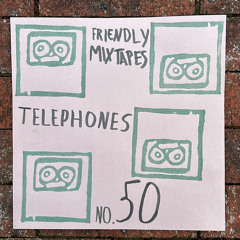 FRIENDLY
MIXTAPES
TELEPHONES
NO. 50